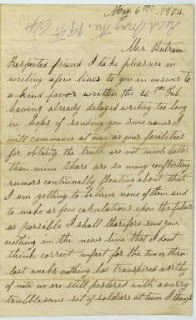 May 6th 1864
Mr Beidram
Respected friend I take pleasure in
writing a few lines to you in answer to
a kind favor written the 26th Feb
having already delayed writing too long
in hopes of sending you some news I
will commence at once as your facilities
for obtaining the truth are not much better
than mine there are so many conflicting
rumors continually floating about that
I am getting to believe none of them and
to make as few calculations upon the future
as possible I shall therefore send you
nothing in the news line that I dont
think correct in fact for the two or three
last weeks nothing has transpired worthy
of note we are still pestered with a very
troublesome set of soldiers at town I